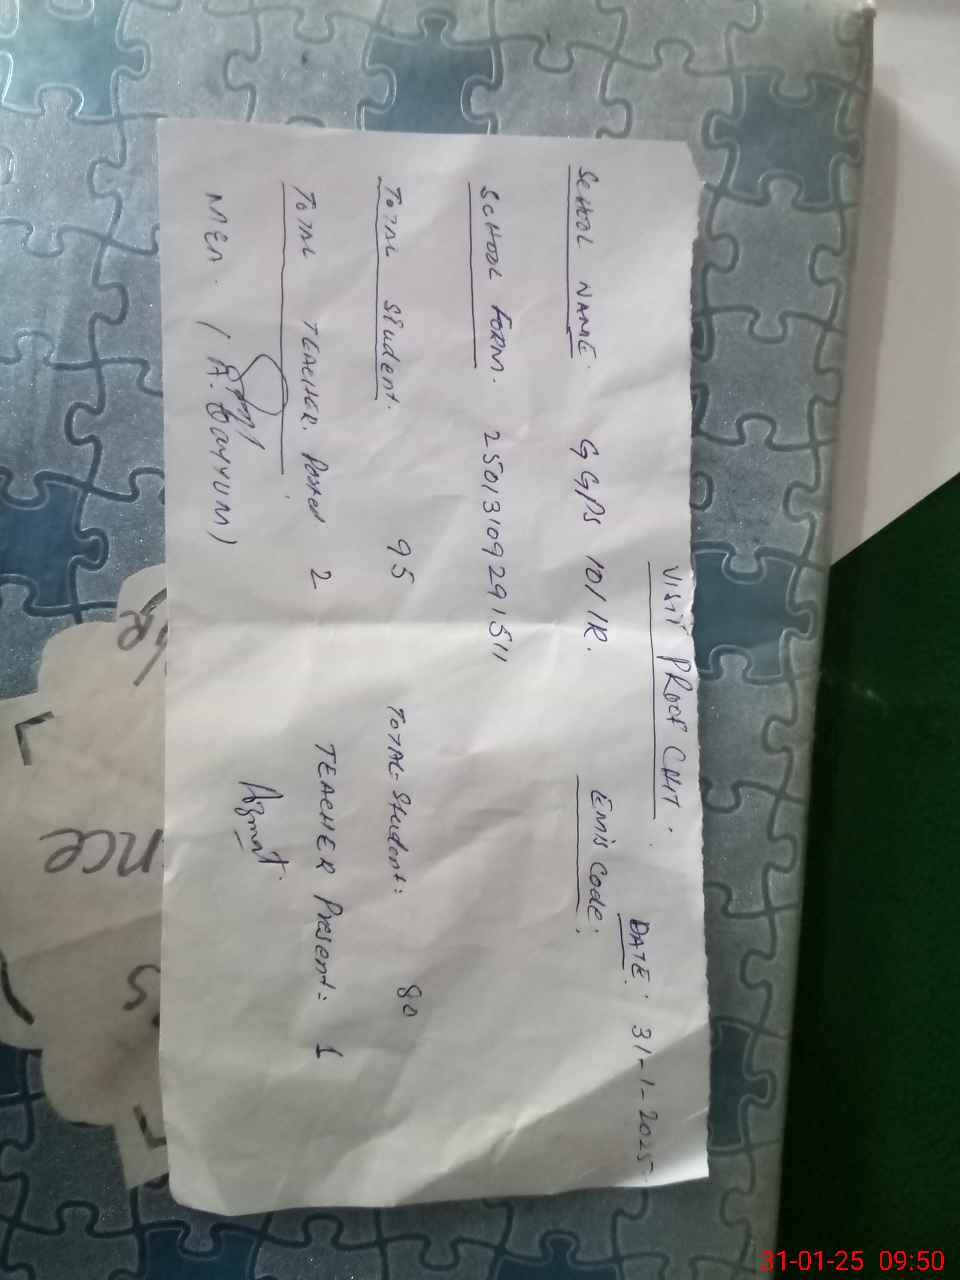 VISIT PROOF CHIT.
DATE: 31-1-2025
SCHOOL NAME. GGPS 10/1R. EMIS Code:
SCHOOL FORM. 25013109291511
TOTAL Student. 95 TOTAL Student: 80
TOTAL TEACHER. Posted 2 TEACHER Present: 1
MEA. (A. Qayyum) Azmat.
nce
31-01-25 09:50